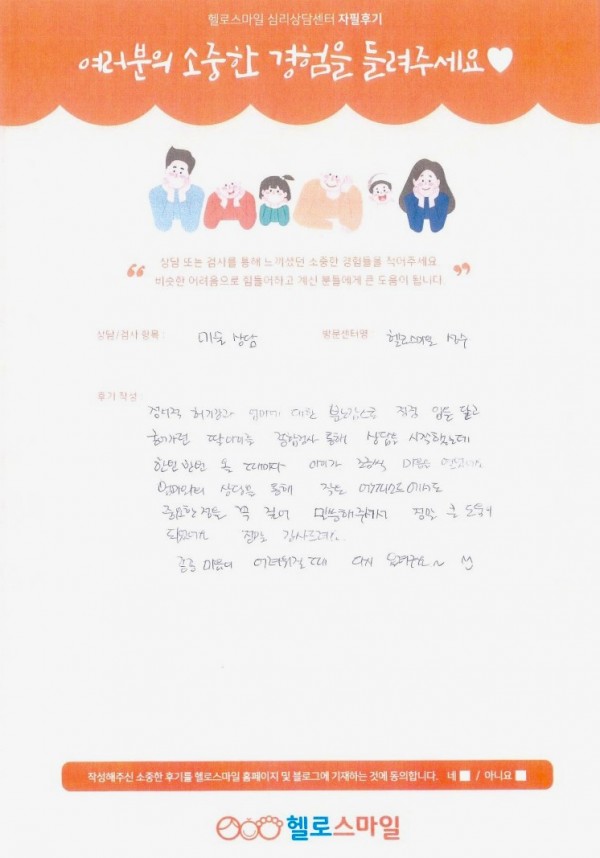 헬로스마일 심리상담센터 자필후기
여러분의 소중한 경험을 들려주세요♥
“ 상담 또는 검사를 통해 느끼셨던 소중한 경험들을 적어주세요.
비슷한 어려움으로 힘들어하고 계신 분들에게 큰 도움이 됩니다. ”
상담/검사 항목 : 미술 상담 방문센터명 : 헬로스마일 성수
후기 작성 :
정서적 허기감과 엄마에 대한 불만감으로 직종 입을 닫고
딸아이를 종합검사 통해 상담을 시작했는데
한번 한번 올 때마다 아이가 조금씩 마음을 열었네요.
엄마와의 상담을 통해 작은 에서도
중요한 점을 꼭 집어 말씀해주셔서 정말 큰 도움이
되었어요 정말 감사드려요.
종종 마음이 어려워질 때 다시 올려구요~
작성해주신 소중한 후기를 헬로스마일 홈페이지 및 블로그에 기재하는 것에 동의합니다. 네 / 아니요
헬로스마일